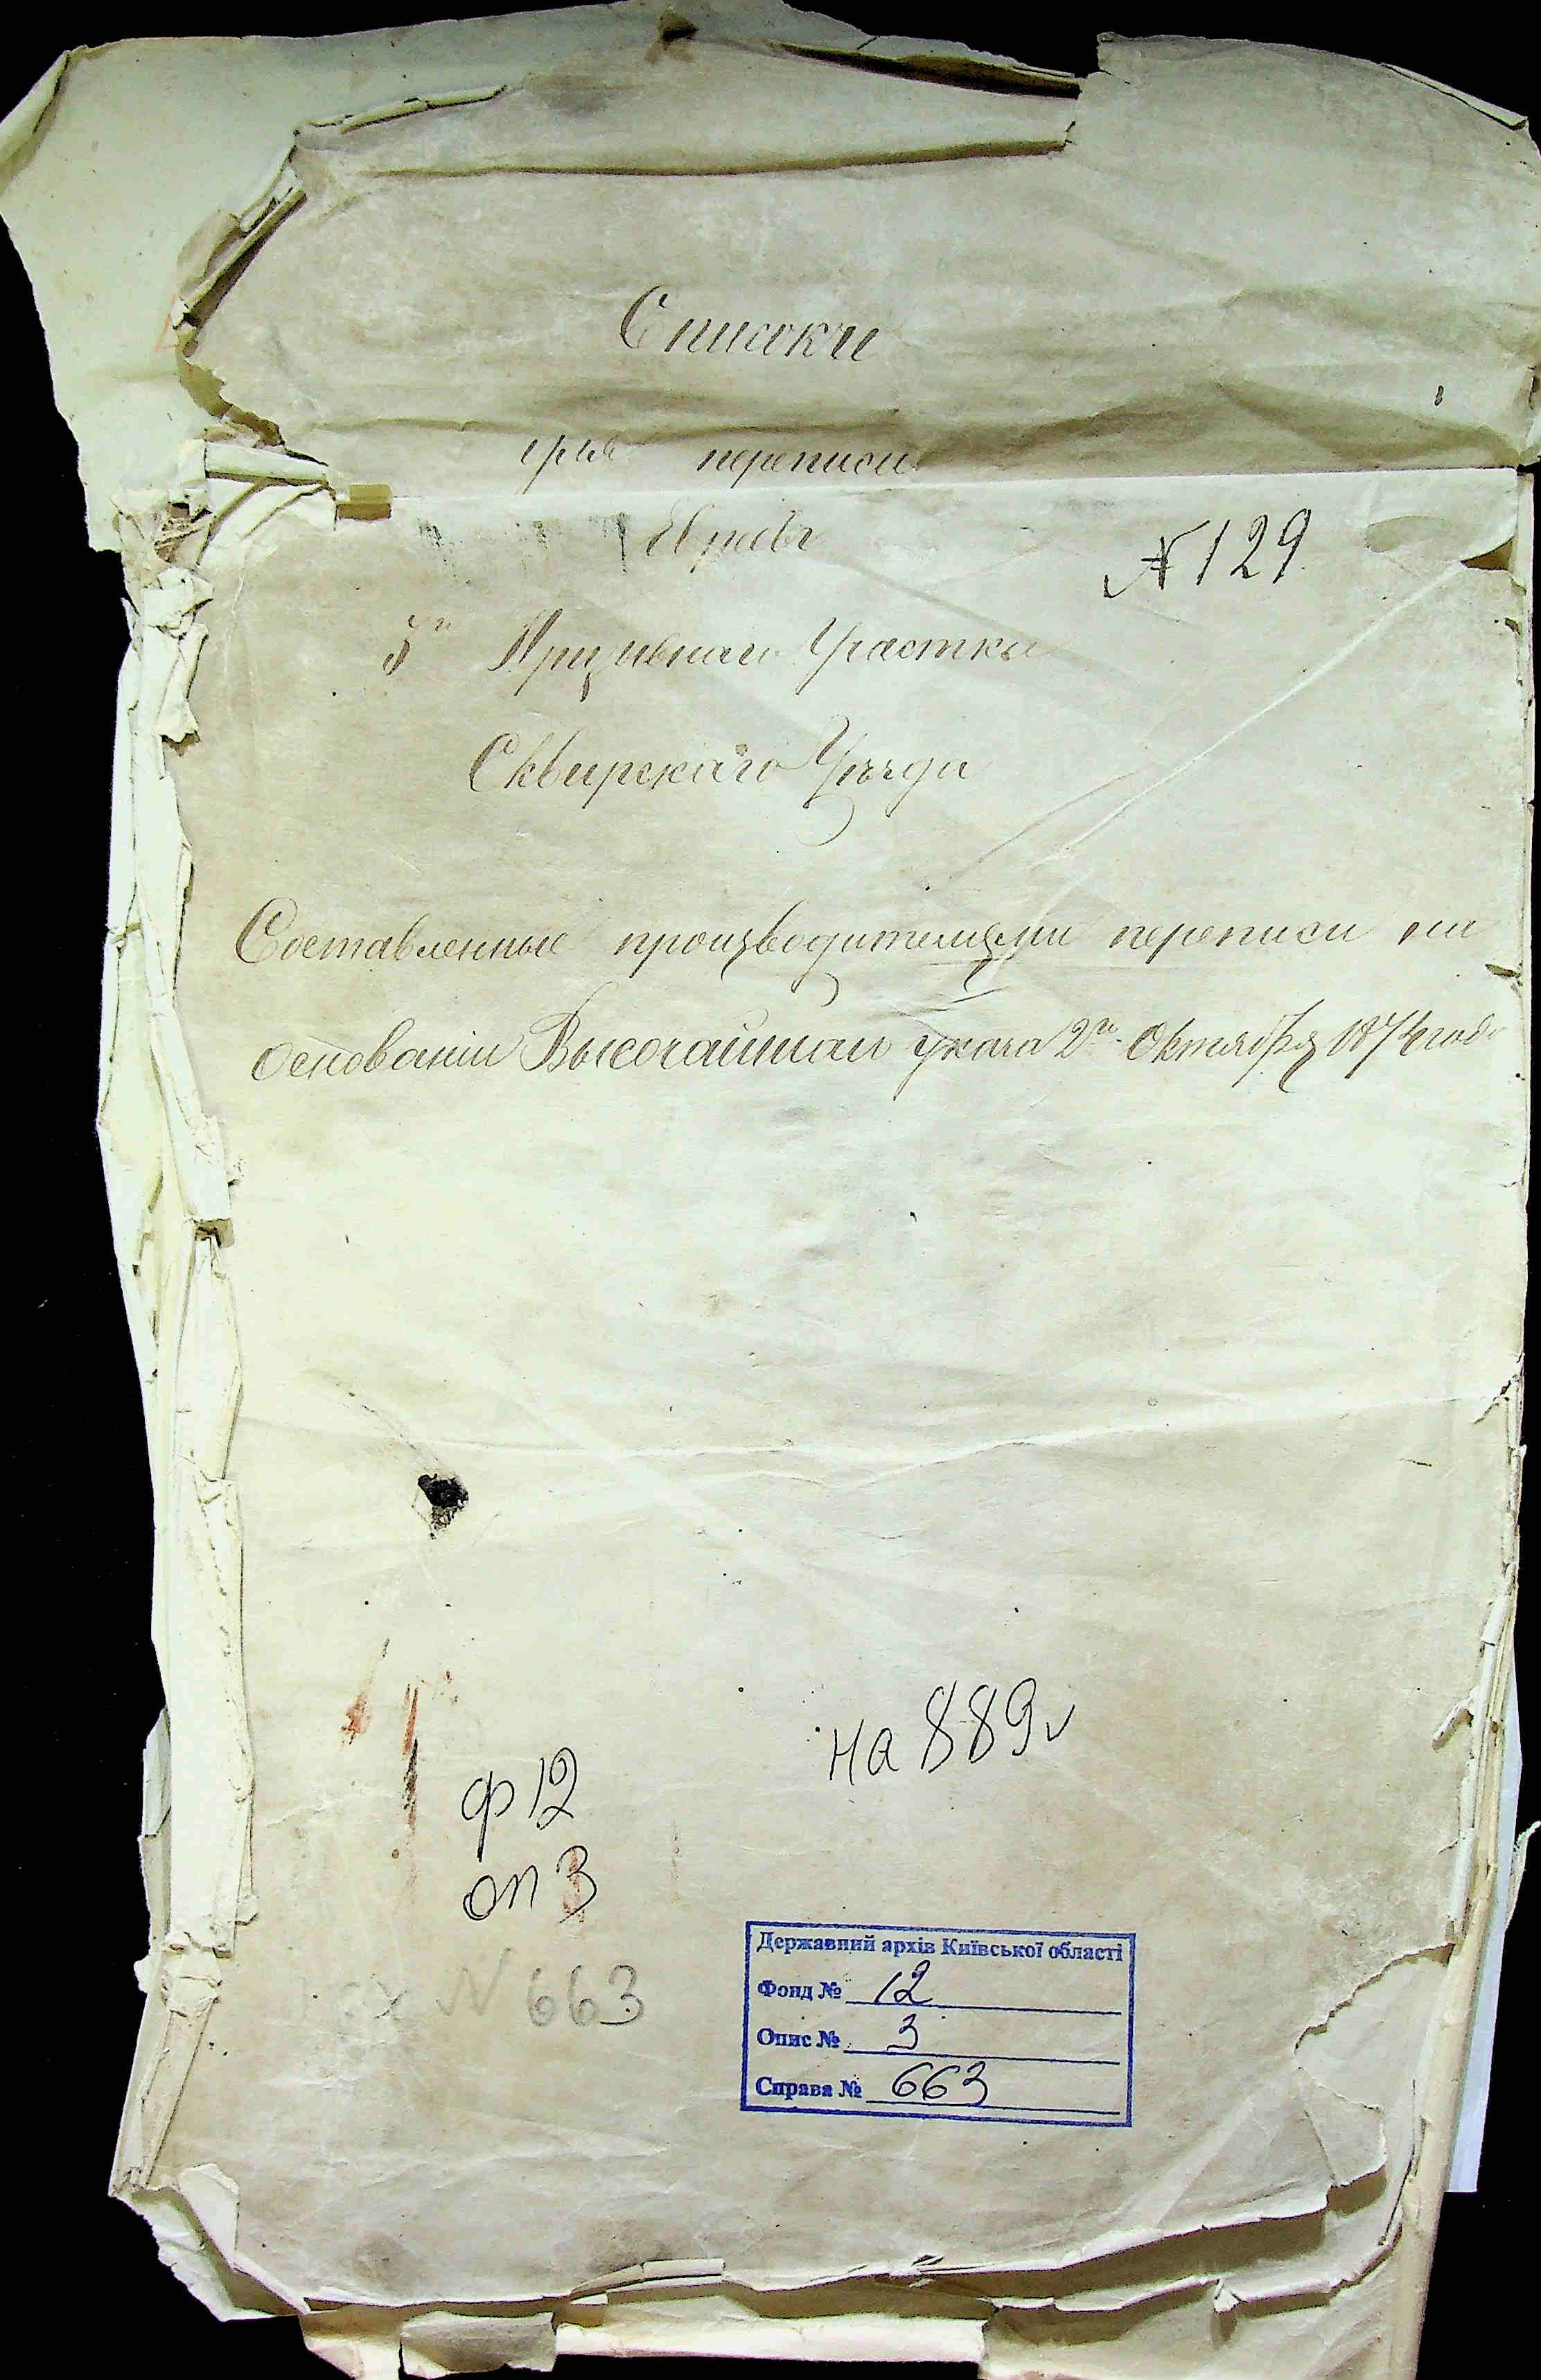 Списки
для переписи
Евреевъ
№ 129
3го Призывнаго Участка
Сквирскаго Уѣзда
Составленные производителями переписи на
основаніи Высочайшаго указа 2го Октября 1874 года
на 889 л
ф 12
оп 3
№ 663
Державний архів Київської області
Фонд № 12
Опис № 3
Справа № 663